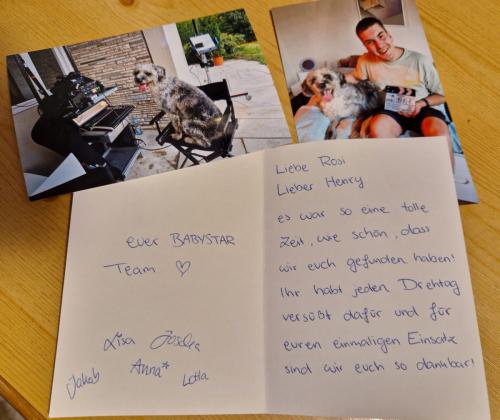 Liebe Rosi
Lieber Henry
es war so eine tolle
Zeit, wie schön, dass
wir euch gefunden haben!
Ihr habt jeden Drehtag
versüßt dafür und für
euren einmaligen Einsatz
sind wir euch so dankbar!
euer BABYSTAR
Team ♡
Lisa Joscha
Jakob Anna* Lotta